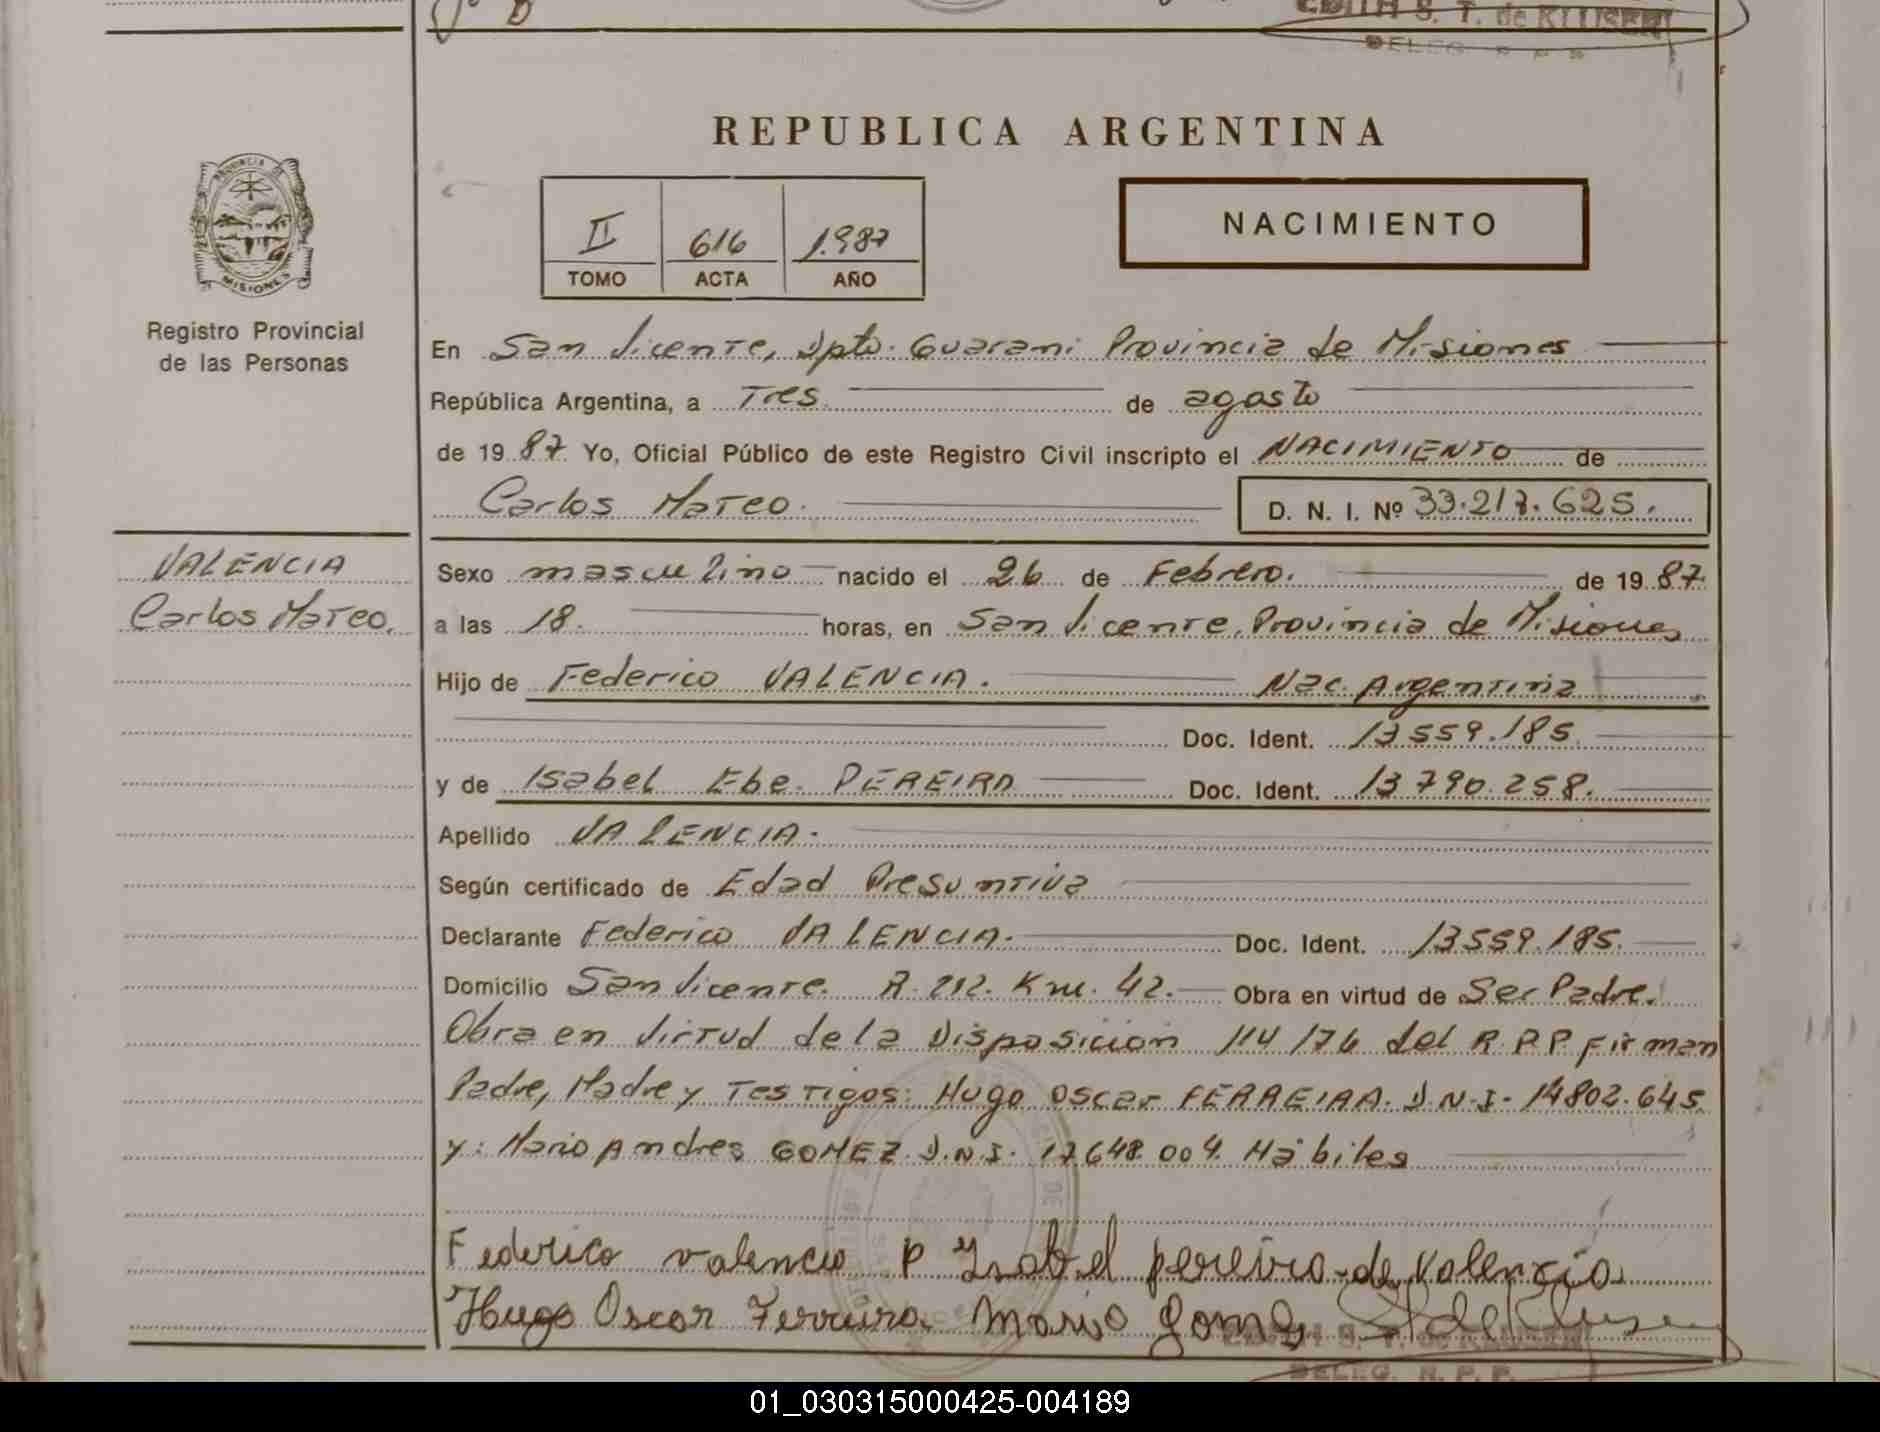 EDITH S. T. de KLUSEN
DELEG. R. P. P.
REPUBLICA ARGENTINA
PROVINCIA
MISIONES
Registro Provincial
de las Personas
II 616 1.987
TOMO ACTA AÑO
NACIMIENTO
En San Vicente, Dpto. Guarani Provincia de Misiones
República Argentina, a Tres de agosto
de 1987. Yo, Oficial Público de este Registro Civil inscripto el NACIMIENTO de
Carlos Mateo. D. N. I. Nº 33.217.625.
VALENCIA
Carlos Mateo.
Sexo masculino nacido el 26 de Febrero. de 1987.
a las 18. horas, en San Vicente, Provincia de Misiones
Hijo de Federico VALENCIA. Nac. Argentina
Doc. Ident. 13 559.185.
y de Isabel Ebe. PEREIRA Doc. Ident. 13 790.258.
Apellido VALENCIA.
Según certificado de Edad Presuntiva
Declarante Federico VALENCIA. Doc. Ident. 13559.185.
Domicilio San Vicente. R. 212. Km. 42. Obra en virtud de Ser Padre.
Obra en Virtud de la Disposición 114/76 del R.P.P firman
Padre, Madre y Testigos: Hugo Oscar FERREIRA. D.N.I. 14802.645
y: Mario Andres GOMEZ. D.N.I. 17648.004. Hábiles
Federico valencia P Ysabel pereira de Valencia
Hugo Oscar Ferreira. Mario Gomez
EDITH S. T. de KLUSEN
DELEG. R. P. P.
01_030315000425-004189